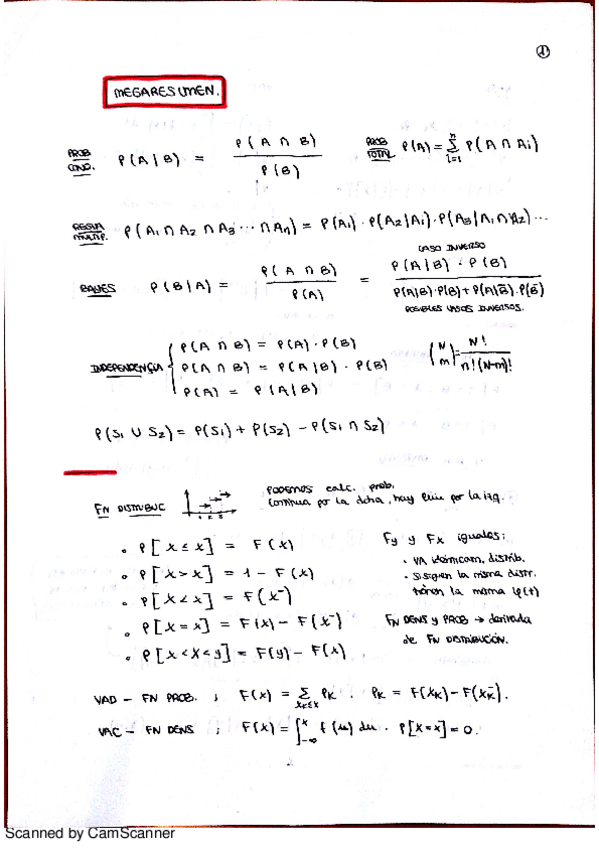 1
MEGARESUMEN.
PROB COND. P(A|B) = P(A ∩ B) / P(B)   PROB TOTAL P(A) = Σ_{i=1}^{n} P(A ∩ Ai)
REGLA MULTIP. P(A1 ∩ A2 ∩ A3 ... ∩ An) = P(A1) · P(A2|A1) · P(A3|A1 ∩ A2) ...
CASO INVERSO
BAYES P(B|A) = P(A ∩ B) / P(A) = P(A|B) · P(B) / P(A|B)·P(B) + P(A|B̄)·P(B̄)
POSIBLES CASOS INVERSOS.
P(A ∩ B) = P(A) · P(B)
INDEPENDENCIA P(A ∩ B) = P(A|B) · P(B)   (N m) = N! / n!(N-m)!
P(A) = P(A|B)
P(S1 ∪ S2) = P(S1) + P(S2) - P(S1 ∩ S2)
FN DISTRIBUC   PODEMOS calc. prob.
Continua por la dcha, hay lim por la izq.
• P[X ≤ x] = F(x)   Fy y Fx iguales:
• P[X > x] = 1 - F(x)   · VA idénticam. distrib.
· Si siguen la misma distr.
• P[X < x] = F(x⁻)   tienen la misma φ(t)
• P[X = x] = F(x) - F(x⁻)   FN DENS y PROB → derivada
de FN DISTRIBUCIÓN.
• P[x < X < y] = F(y) - F(x)
VAD - FN PROB. ; F(x) = Σ_{xk≤x} Pk . Pk = F(xk) - F(xk⁻).
VAC - FN DENS ; F(x) = ∫_{-∞}^{x} f(u) du · P[X=x] = 0.
Scanned by CamScanner